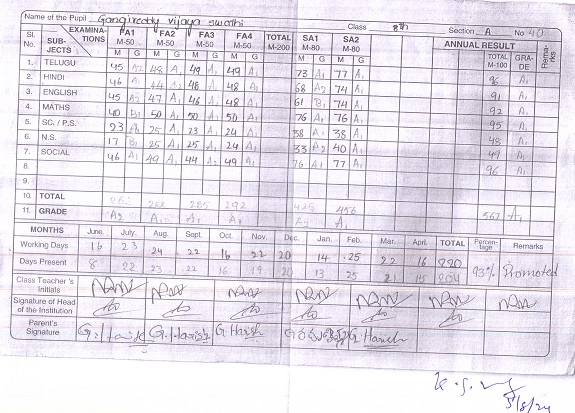 Name of the Pupil Gangireddy vijaya swathi Class Section A No 40
Sl. No. EXAMINATIONS SUBJECTS FA1 M-50 FA2 M-50 FA3 M-50 FA4 M-50 TOTAL M-200 SA1 M-80 SA2 M-80 ANNUAL RESULT
M G M G M G M G M G M G TOTAL M-100 GRADE Remarks
1. TELUGU 45 A2 48 A1 49 A1 49 A1 73 A1 77 A1 96 A1
2. HINDI 46 A1 44 A2 46 A1 48 A1 68 A2 74 A1 91 A1
3. ENGLISH 45 A2 47 A1 46 A1 48 A1 61 B1 74 A1 92 A1
4. MATHS 40 B1 50 A1 50 A1 50 A1 76 A1 76 A1 95 A1
5. SC. / P.S. 23 A1 25 A1 23 A1 24 A1 38 A1 38 A1 48 A1
6. N.S. 17 B1 25 A1 25 A1 24 A1 33 A2 40 A1 49 A1
7. SOCIAL 46 A1 49 A1 44 A2 49 A1 76 A1 77 A1 96 A1
8.
9.
10. TOTAL 262 288 285 292 425 456
11. GRADE A2 A1 A1 A1 A2 A1 567 A1
MONTHS June. July. Aug. Sept. Oct. Nov. Dec. Jan. Feb. Mar. April. TOTAL Percentage Remarks
Working Days 16 23 24 22 16 22 20 14 25 22 16 220
Days Present 8 22 23 22 16 19 20 13 25 21 15 204 93% Promoted
Class Teacher's Initials
Signature of Head of the Institution
Parent's Signature G. Harish G. Harish G. Harish G. Harish
5/8/24